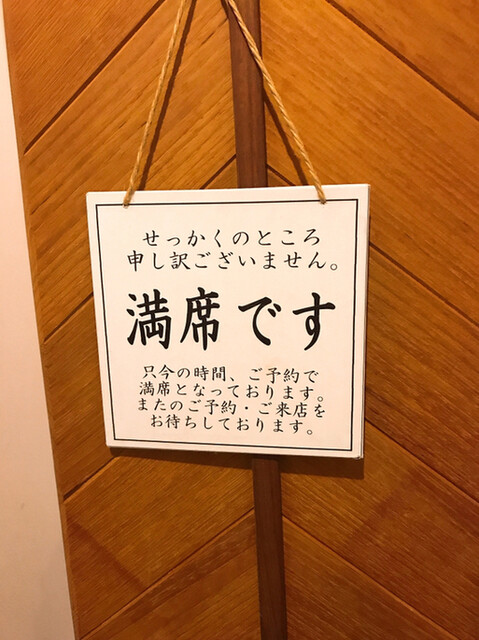 せっかくのところ
申し訳ございません。
満席です
只今の時間、ご予約で
満席となっております。
またのご予約・ご来店を
お待ちしております。